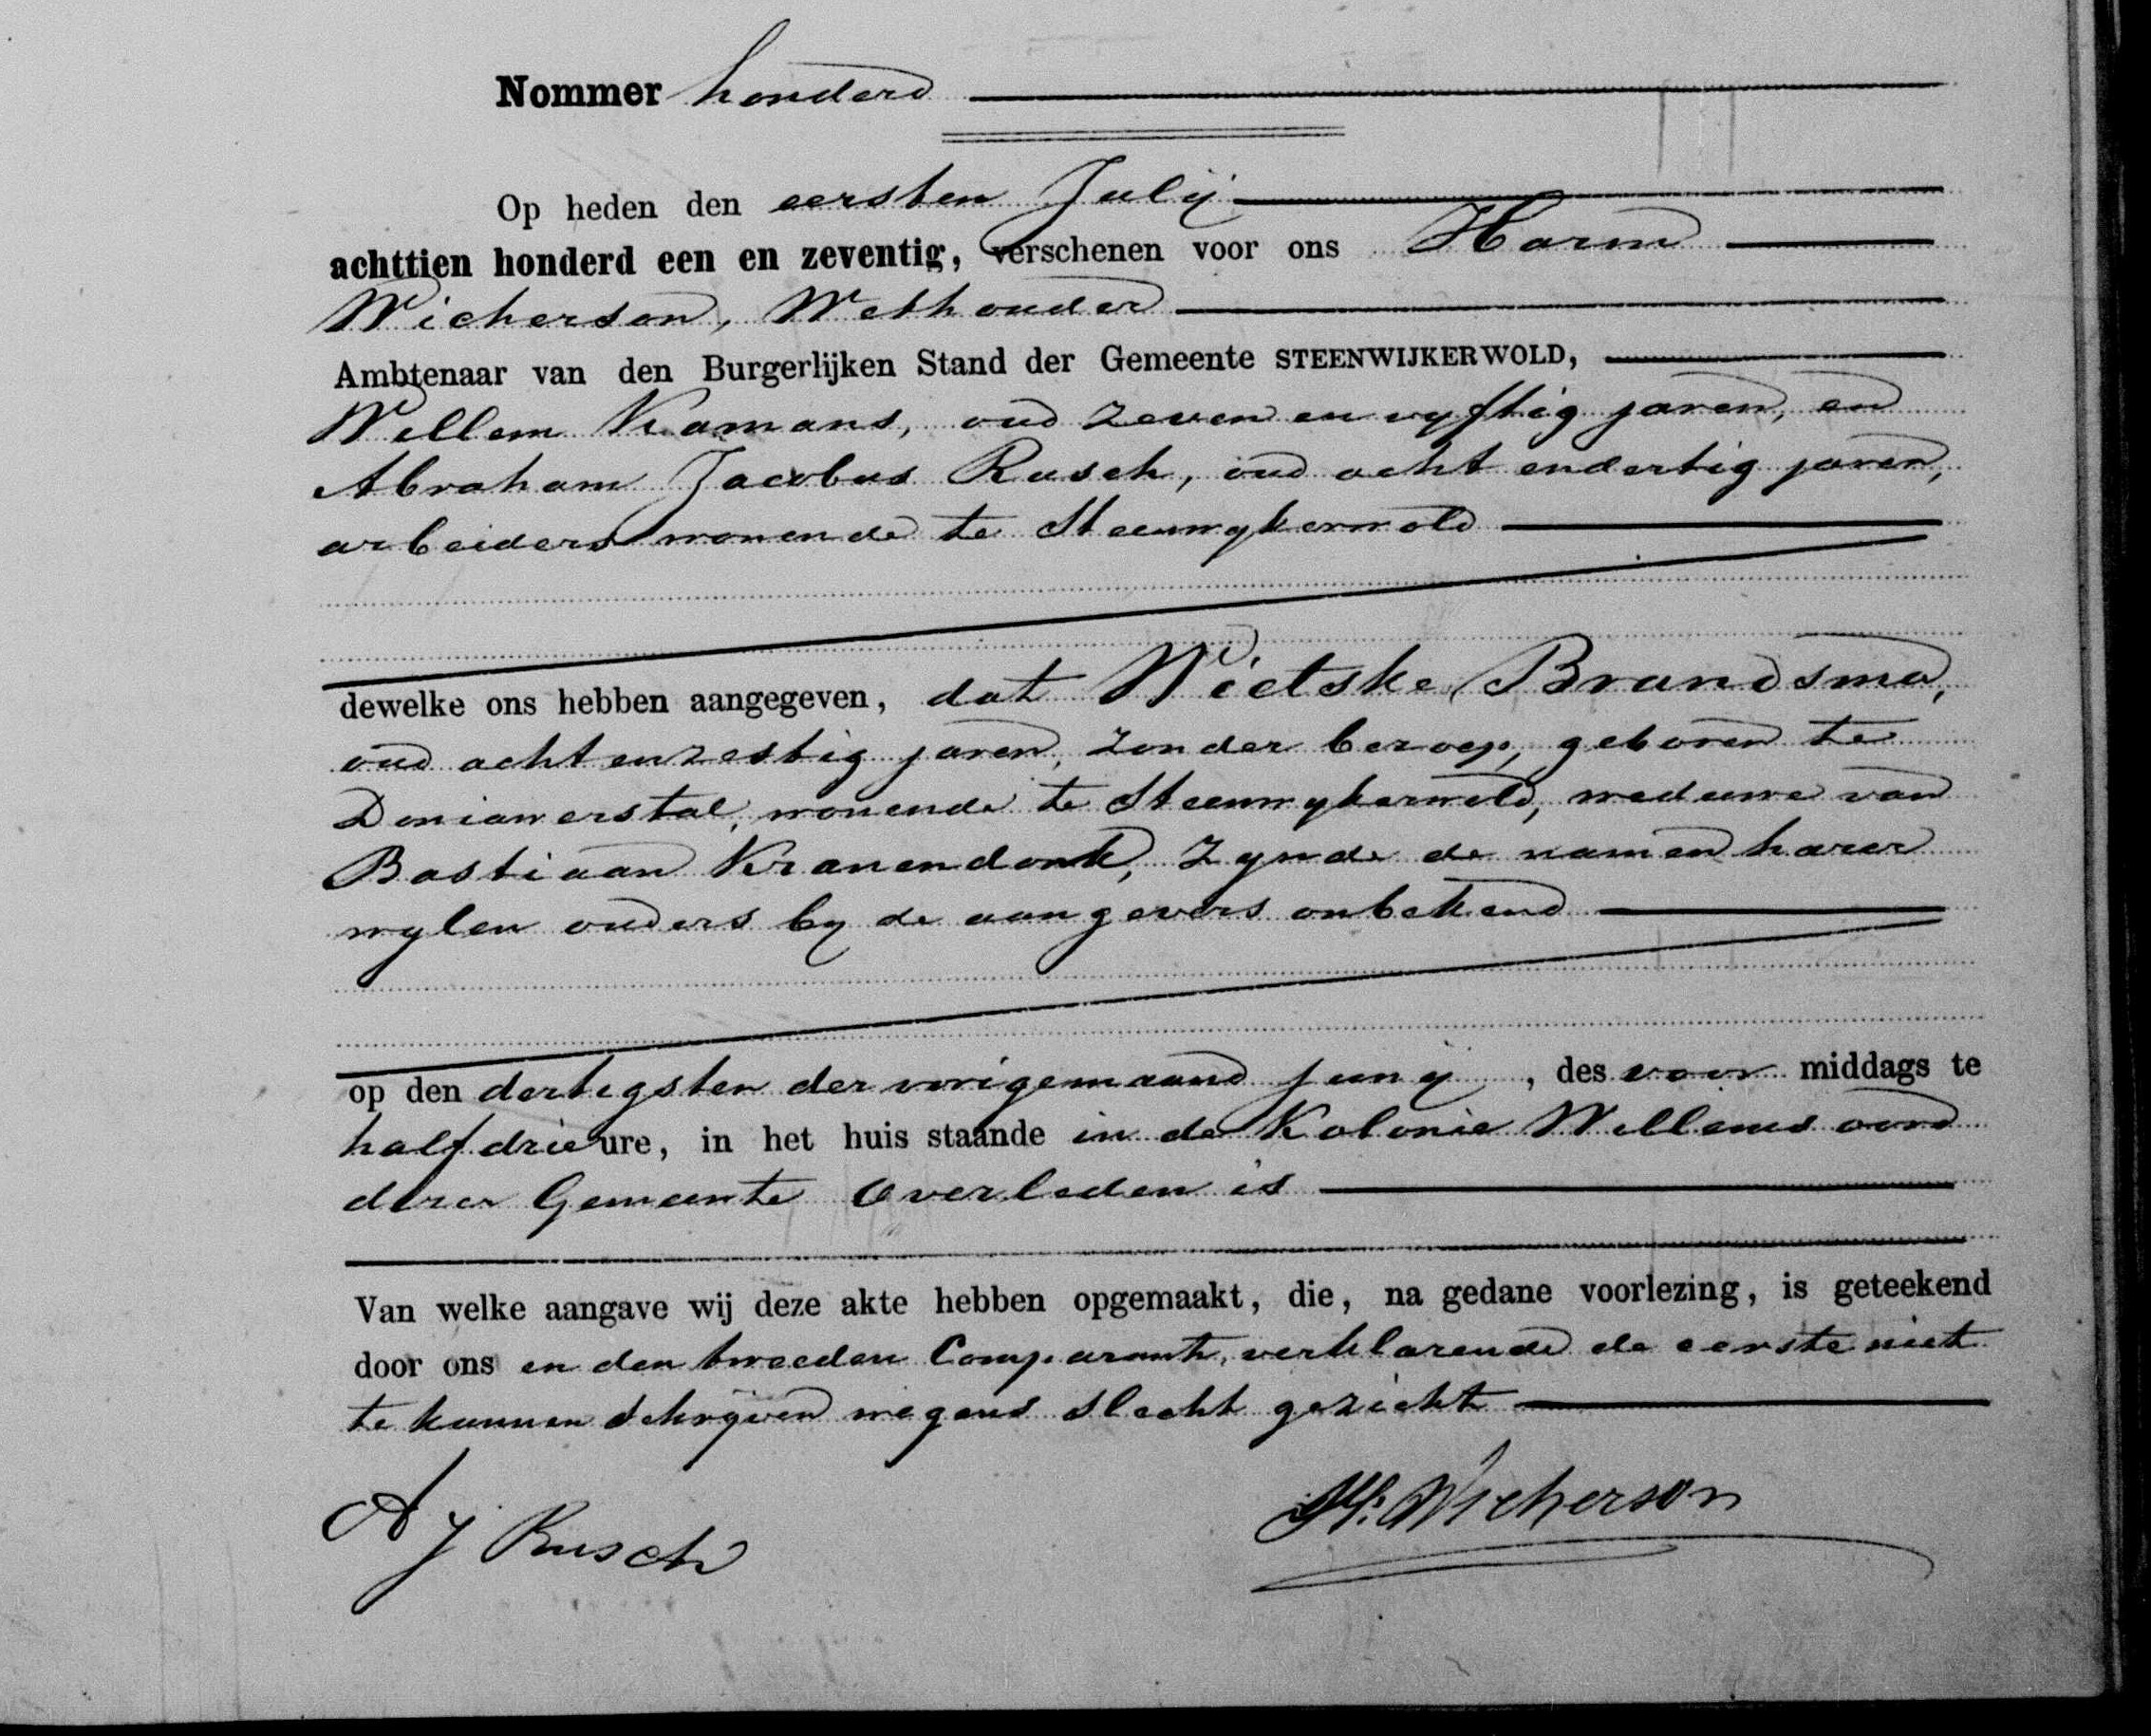 Nommer honderd
Op heden den eersten Julij
achttien honderd een en zeventig, verschenen voor ons Harm
Wicherson, Wethouder
Ambtenaar van den Burgerlijken Stand der Gemeente STEENWIJKERWOLD,
Willem Kamans, oud zeven en vyftig jaren, en
Abraham Jacobus Rusch, oud acht en dertig jaren,
arbeiders wonende te Steenwykerwold
dewelke ons hebben aangegeven, dat Wietske Brandsma,
oud acht en zestig jaren, zonder beroep, geboren te
Doniawerstal, wonende te Steenwykerwold, weduwe van
Bastiaan Kranendonk, zynde de namen harer
wylen ouders by de aangevers onbekend
op den dertigsten der vorige maand Juny, des voor middags te
half drie ure, in het huis staande in de Kolonie Willemsoord
dezer Gemeente overleden is
Van welke aangave wij deze akte hebben opgemaakt, die, na gedane voorlezing, is geteekend
door ons en den tweeden Comparant, verklarende de eerste niet
te kunnen schrijven wegens slecht gezicht
A J Rusch H. Wicherson